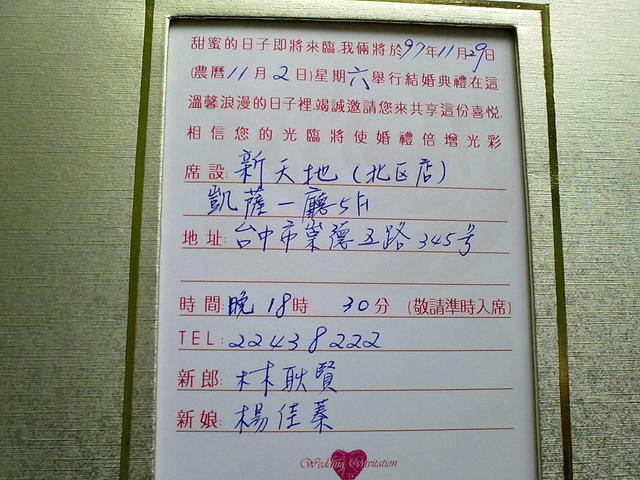 甜蜜的日子即將來臨,我倆將於97年11月29日
(農曆11月2日)星期六舉行結婚典禮在這
溫馨浪漫的日子裡,竭誠邀請您來共享這份喜悅,
相信您的光臨將使婚禮倍增光彩
席設:新天地(北区店)
凱薩一廳5F
地址:台中市崇德五路345号
時間:晚18時30分(敬請準時入席)
TEL:22438222
新郎:林耿賢
新娘:楊佳蓁
Wedding Invitation